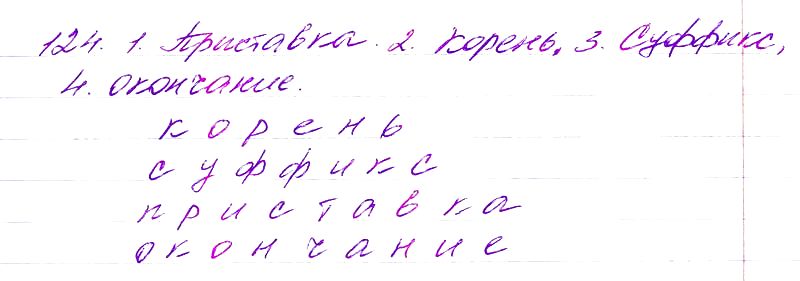 124. 1. Приставка. 2. Корень. 3. Суффикс,
4. окончание.
к о р е н ь
с у ф ф и к с
п р и с т а в к а
о к о н ч а н и е